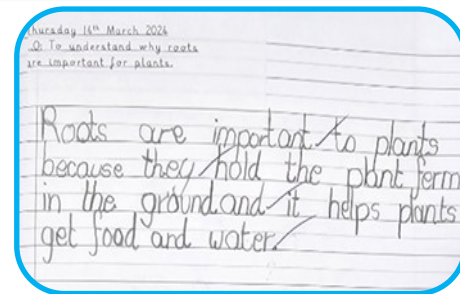 hursday 14th March 2024
Q: To understand why roots
are important for plants.
Roots are important to plants
because they hold the plant ferm
in the ground and it helps plants
get food and water.